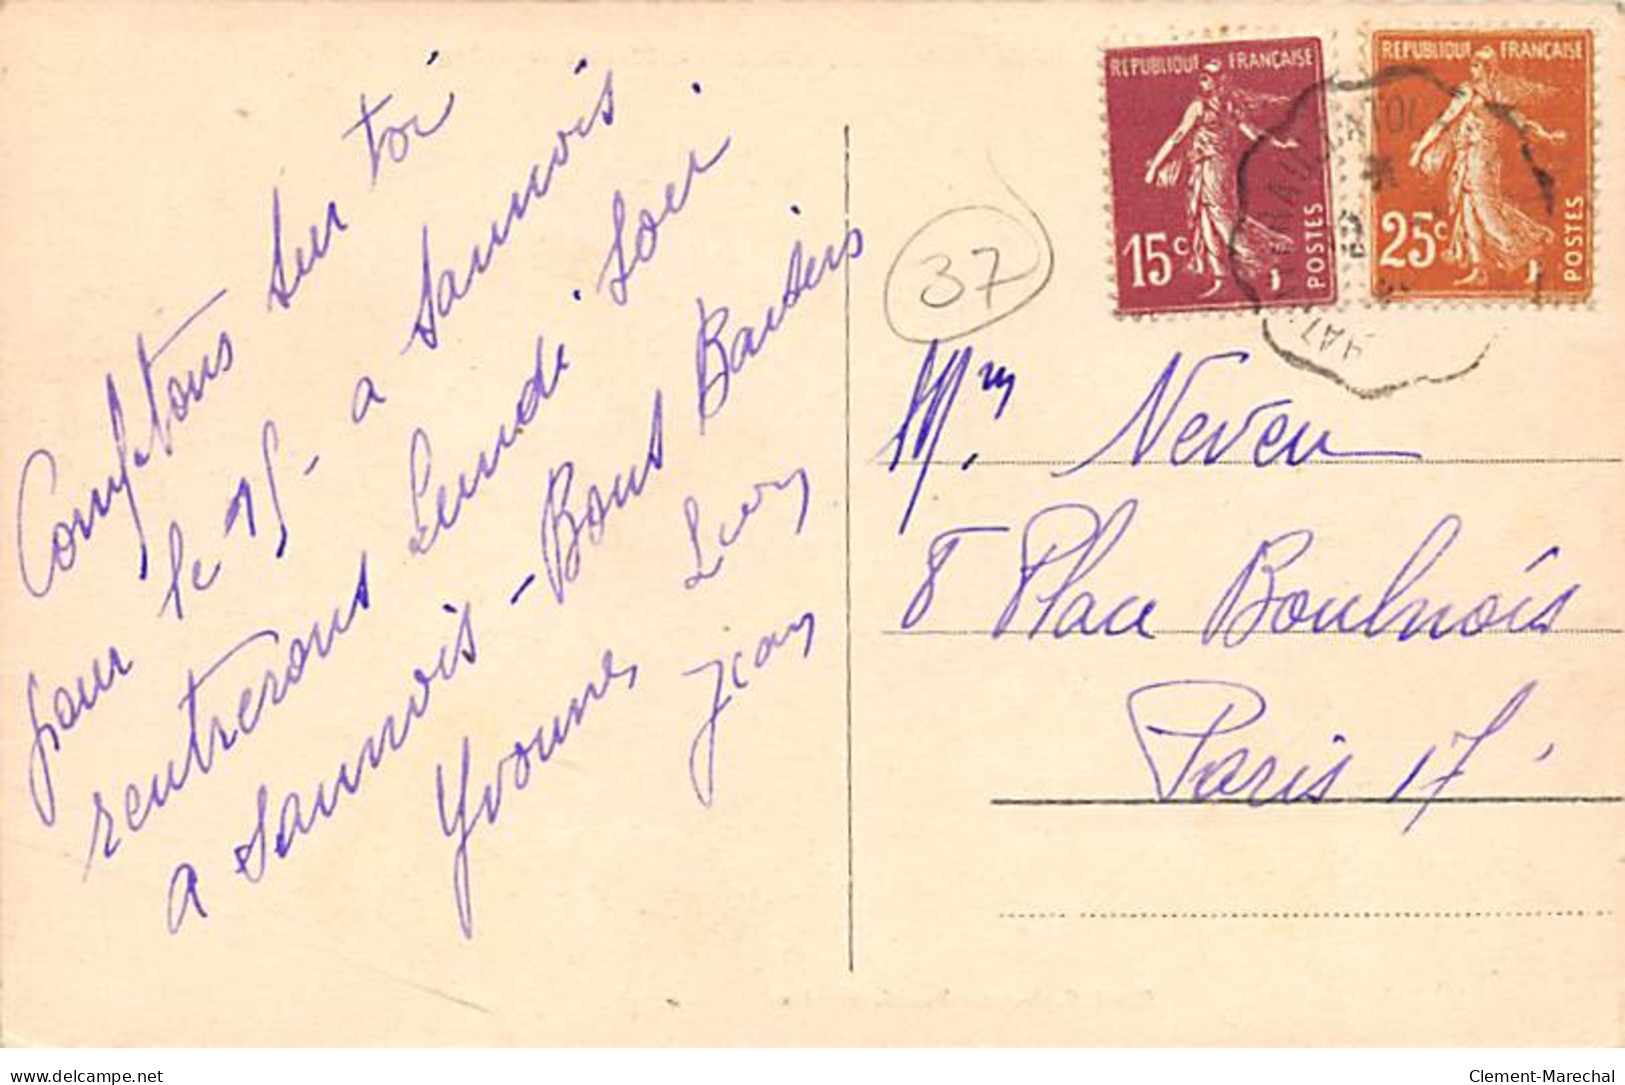 Comptons sur toi
pour le 15 - a Sannois
rentrerons Lundi Soir
a Sannois - Bons Baisers
Yvonne Lucy
Jean
37
REPUBLIQUE FRANÇAISE
15c
POSTES
REPUBLIQUE FRANÇAISE
25c
POSTES
Mr Neveu
8 Place Boulnois
Paris 17
delcampe.net
Clement-Marechal